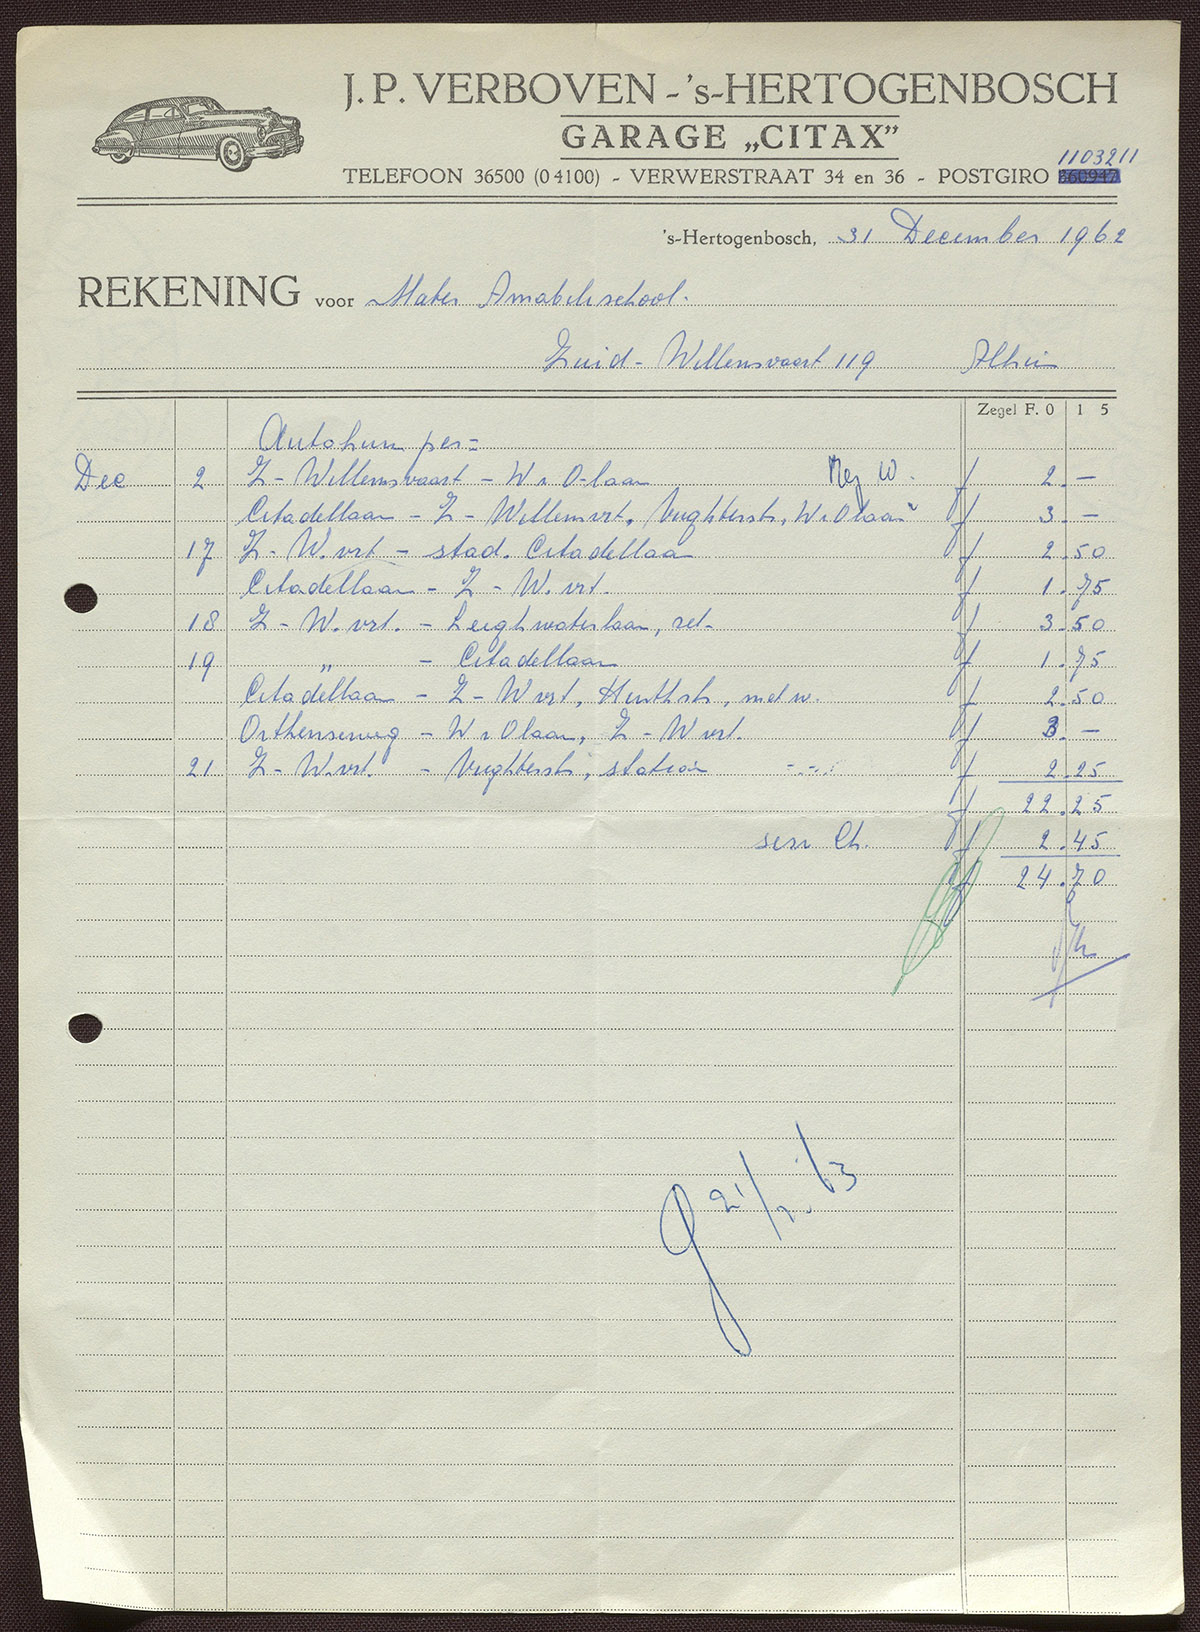 J. P. VERBOVEN - 's-HERTOGENBOSCH
GARAGE „CITAX”
1103211
TELEFOON 36500 (0 4100) - VERWERSTRAAT 34 en 36 - POSTGIRO 360947
's-Hertogenbosch, 31 December 1962
REKENING voor Mater Amabilisschool.
Zuid-Willemsvaart 119 Alhier
Zegel F. 0 15
Autohuur per =
Dec 2 Z-Willemsvaart - W v O-laan f 2.-
Citadellaan - Z-Willemsvrt, Vughterstr, W v Olaan f 3.-
17 Z-W.vrt - stad. Citadellaan f 2.50
Citadellaan - Z-W.vrt. f 1.75
18 Z-W.vrt. - Leeghwaterlaan, ret- f 3.50
19 „ - Citadellaan f 1.75
Citadellaan - Z-W vrt, Hinthstr, f 2.50
Orthenseweg - W v Olaan, Z-W vrt. f 3.-
21 Z-W.vrt. - Vughterstr, station f 2.25
f 22.25
serv Ch. f 2.45
f 24.70
21/2.'63